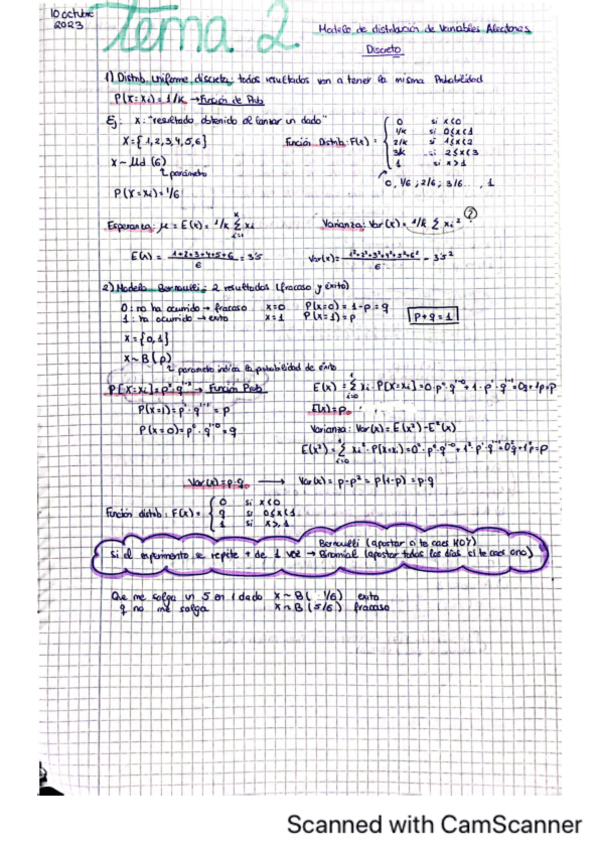 10 octubre
2023
Tema 2
Modelo de distribución de Variables Aleatorias
Discreto
1) Distrib. Uniforme discreta: todos resultados van a tener la misma Probabilidad
P(X=Xi) = 1/K → Función de Prob
Ej: X: "resultado obtenido al lanzar un dado"
X={1,2,3,4,5,6}
Función Distrib: F(x) =
0 si x<0
1/k si 0≤x<1
2/k si 1≤x<2
3/k si 2≤x<3
1 si x>1
X ~ Ud (6)
parámetro
0, 1/6, 2/6, 3/6 ... , 1
P(X=Xi) = 1/6
Esperanza: μ = E(x) = 1/k Σ xi
Varianza: Var(x) = 1/k Σ xi² ?
E(x) = 1+2+3+4+5+6 / 6 = 3'5
Var(x) = 1²+2²+3²+4²+5²+6² / 6 - 3'5²
2) Modelo Bernoulli: 2 resultados (fracaso y éxito)
0: no ha ocurrido → fracaso x=0 P(x=0) = 1-p = q
1: ha ocurrido → exito x=1 P(x=1) = p
p+q=1
X={0,1}
X~B(p)
parametro indica la probabilidad de éxito
P[X=Xi] = pˣ·q¹⁻ˣ → Función Prob
E(x) = Σ xi · P[X=xi] = 0·p⁰·q¹⁻⁰+1·p¹·q¹⁻¹=0q+1p=p
P(x=1) = p¹·q¹⁻¹ = p
E(x)=p
P(x=0) = p⁰·q¹⁻⁰ = q
Varianza: Var(x) = E(x²)-E²(x)
E(x²) = Σ xi² · P[x=xi] = 0²·p⁰·q¹⁻⁰+1²·p¹·q¹⁻¹=0²q+1²p=p
Var(x)=p·q → Var(x) = p-p² = p(1-p) = p·q
Función distrib: F(x) =
0 si x<0
q si 0≤x<1
1 si x>1
Bernoulli (apostar a te caes HOY)
Si el experimento se repite + de 1 vez → Binomial (apostar todos los días si te caes o no)
Que me salga un 5 en 1 dado x ~ B( 1/6) exito
q no me salga x ~ B (5/6) fracaso
Scanned with CamScanner